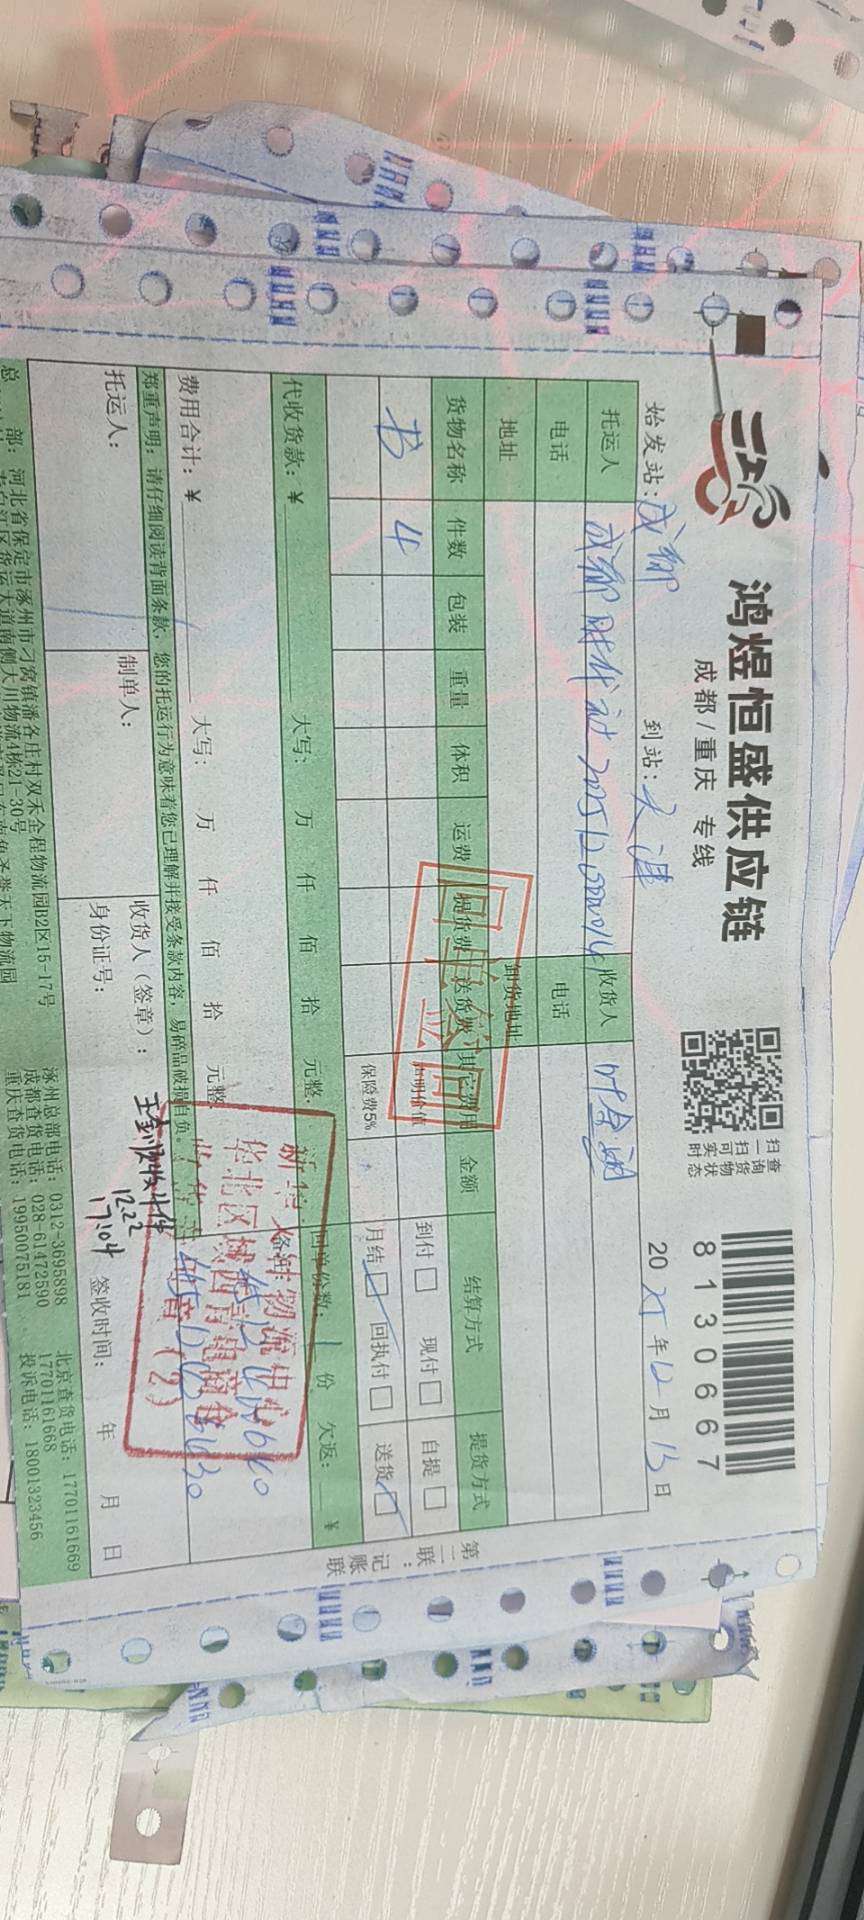 鸿煜恒盛供应链
成都/重庆 专线
扫一扫可查询货物实时状态
8130667
始发站：成都 到站：天津 2025年12月13日
托运人 成都时代 收货人
电话 电话
地址 卸货地址
货物名称 件数 包装 重量 体积 运费 提货费 送货费 其它费用 金额 结算方式 提货方式
书 4 声明价值 到付 现付 自提
保险费5% 月结 回执付 送货
回单签回
代收货款：￥ 大写： 万 仟 佰 拾 元整 回单份数：1份 欠返： ￥
费用合计：￥ 大写： 万 仟 佰 拾 元整 备注
郑重声明：请仔细阅读背面条款，您的托运行为意味着您已理解并接受条款内容，易碎品破损自负。
托运人： 制单人： 收货人（签章）： 收4件
身份证号： 12.22 17:04 签收时间： 年 月 日
华北区域西青电商仓
(2)
总 部：河北省保定市涿州市刁窝镇潘各庄村双禾金程物流园B2区15-17号 涿州总部电话：0312-3695898 北京查货电话：17701161669
货运大道南侧大川物流4栋21-30号 成都查货电话：028-61472590 17701161668
重庆查货电话：19950075181 投诉电话：18001323456
第二联：记账联